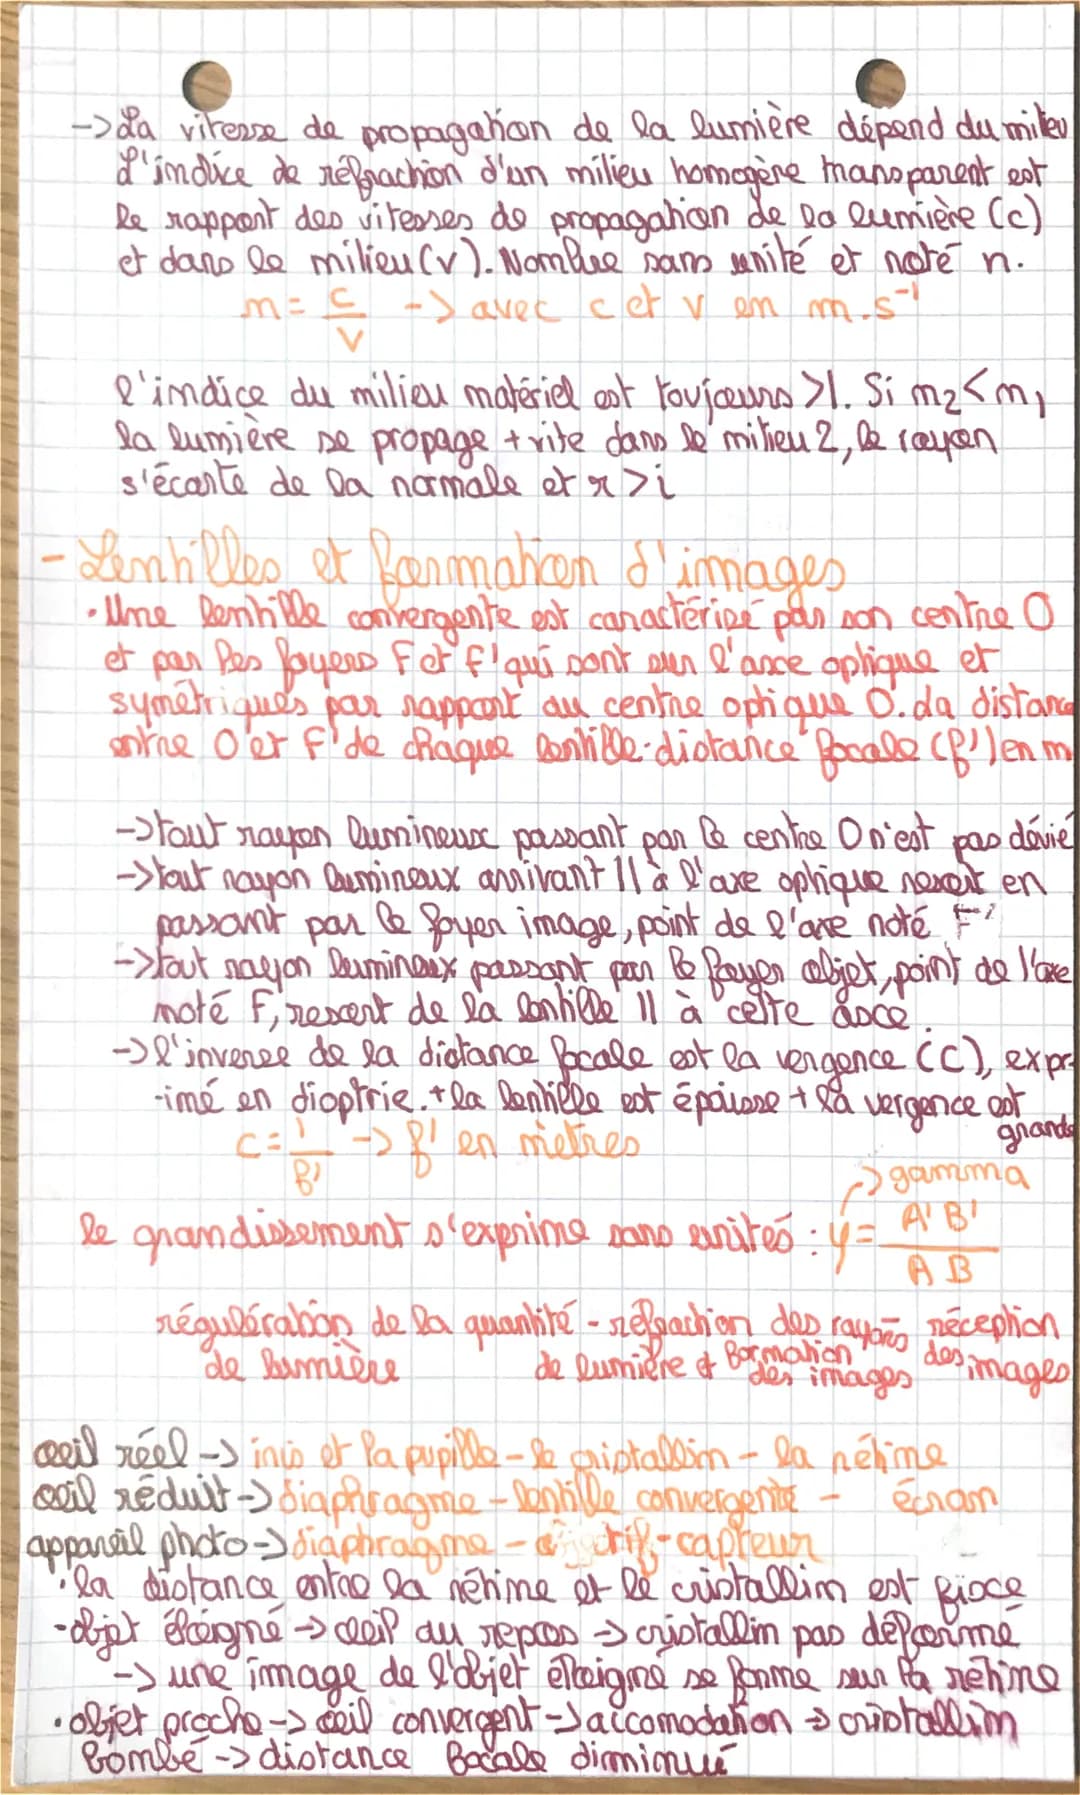 -> La vitesse de propagation de la lumière dépend du milieu
L'indice de réfraction d'un milieu homogène transparent est
le rapport des vitesses de propagation de la lumière (c)
et dans le milieu (v). Nombre sans unité et noté n.
n = c/v -> avec c et v en m.s⁻¹
l'indice du milieu matériel est toujours >1. Si n₂ < n₁
la lumière se propage + vite dans le milieu 2, le rayon
s'écarte de la normale et r > i
- Lentilles et formation d'images
• Une lentille convergente est caractérisé par son centre O
et par les foyers F et F' qui sont sur l'axe optique et
symétriques par rapport au centre optique O. La distance
entre O et F' de chaque lentille: distance focale (f') en m
-> tout rayon lumineux passant par le centre O n'est pas dévié
-> tout rayon lumineux arrivant // à l'axe optique ressort en
passant par le foyer image, point de l'axe noté F'
-> tout rayon lumineux passant par le foyer objet, point de l'axe
noté F, resort de la lentille // à cette axe.
-> l'inverse de la distance focale est la vergence (C), expr-
-imé en dioptrie. + la lentille est épaisse + la vergence est
grande
C = 1/f' -> f' en mètres
-> gamma
le grandissement s'exprime sans unités : γ = A'B'/AB
régulération de la quantité - réfraction des rayons réception
de lumière de lumière et formation des images des images
oeil réel -> iris et la pupille - le cristallin - la rétine
oeil réduit -> diaphragme - lentille convergente - écran
appareil photo -> diaphragme - objectif - capteur
• la distance entre la rétine et le cristallin est fixe
- objet éloigné -> oeil au repos -> cristallin pas déformé
-> une image de l'objet éloigné se forme sur la rétine
• objet proche -> oeil convergent -> accomodation -> cristallin
bombé -> distance focale diminué